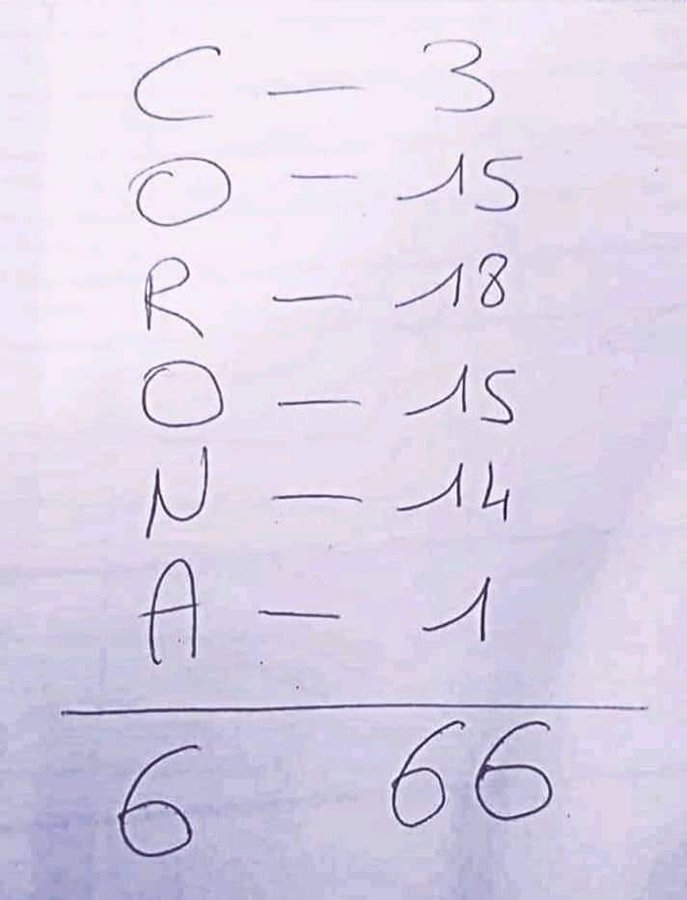 C — 3
O — 15
R — 18
O — 15
N — 14
A — 1
6 66